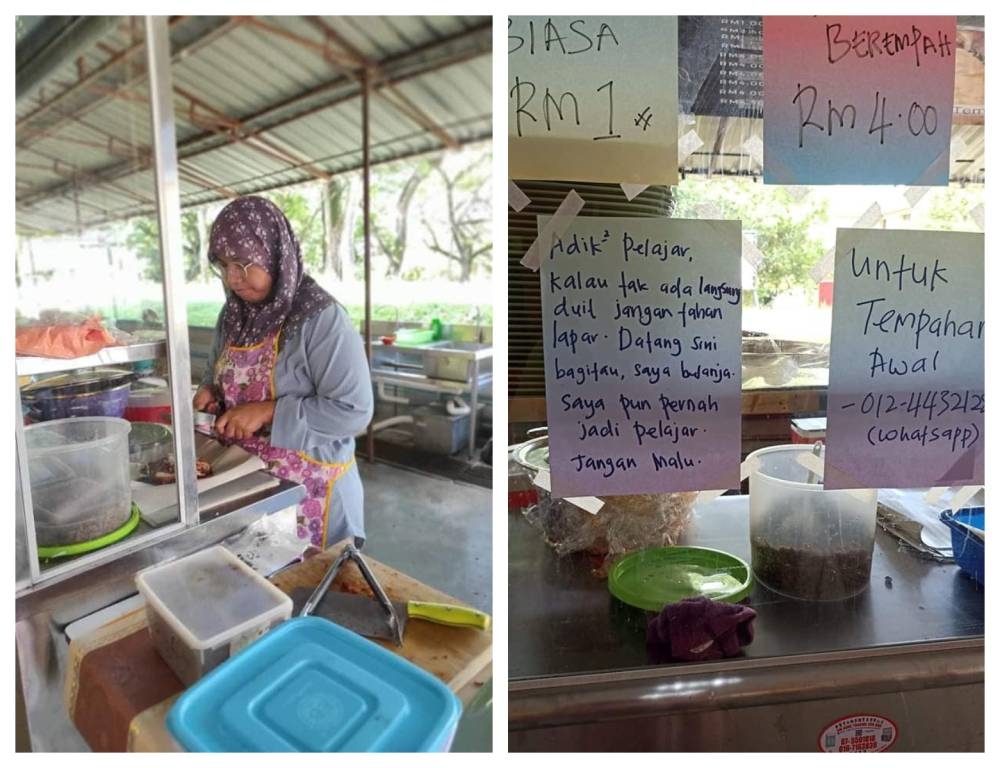 BIASA
RM 1
BEREMPAH
RM 4.00
Adik² Pelajar,
kalau tak ada langsung
duit jangan tahan
lapar. Datang sini
bagitau, saya belanja.
Saya pun pernah
jadi pelajar.
Jangan Malu.
Untuk
Tempahan
Awal
- 012-4432128
(whatsapp)